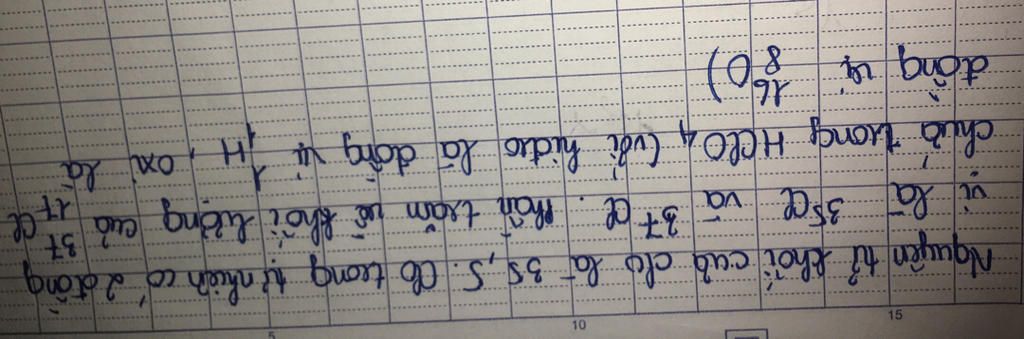 Nguyên tử khối của clo là 35,5. Clo trong tự nhiên có 2 đồng
vị là ³⁵Cl và ³⁷Cl. Phần trăm về khối lượng của ³⁷₁₇Cl
chứa trong HClO₄ (với hiđro là đồng vị ¹₁H, oxi là
đồng vị ¹⁶₈O)
5
10
15